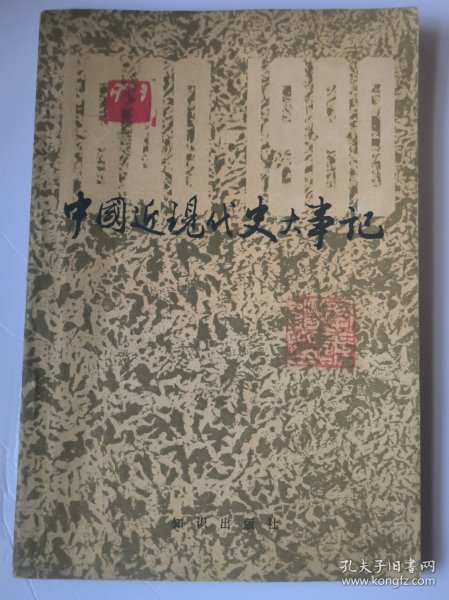 1840-1980
中國近現代史大事记
知识出版社
孔夫子旧书网
www.kongfz.com